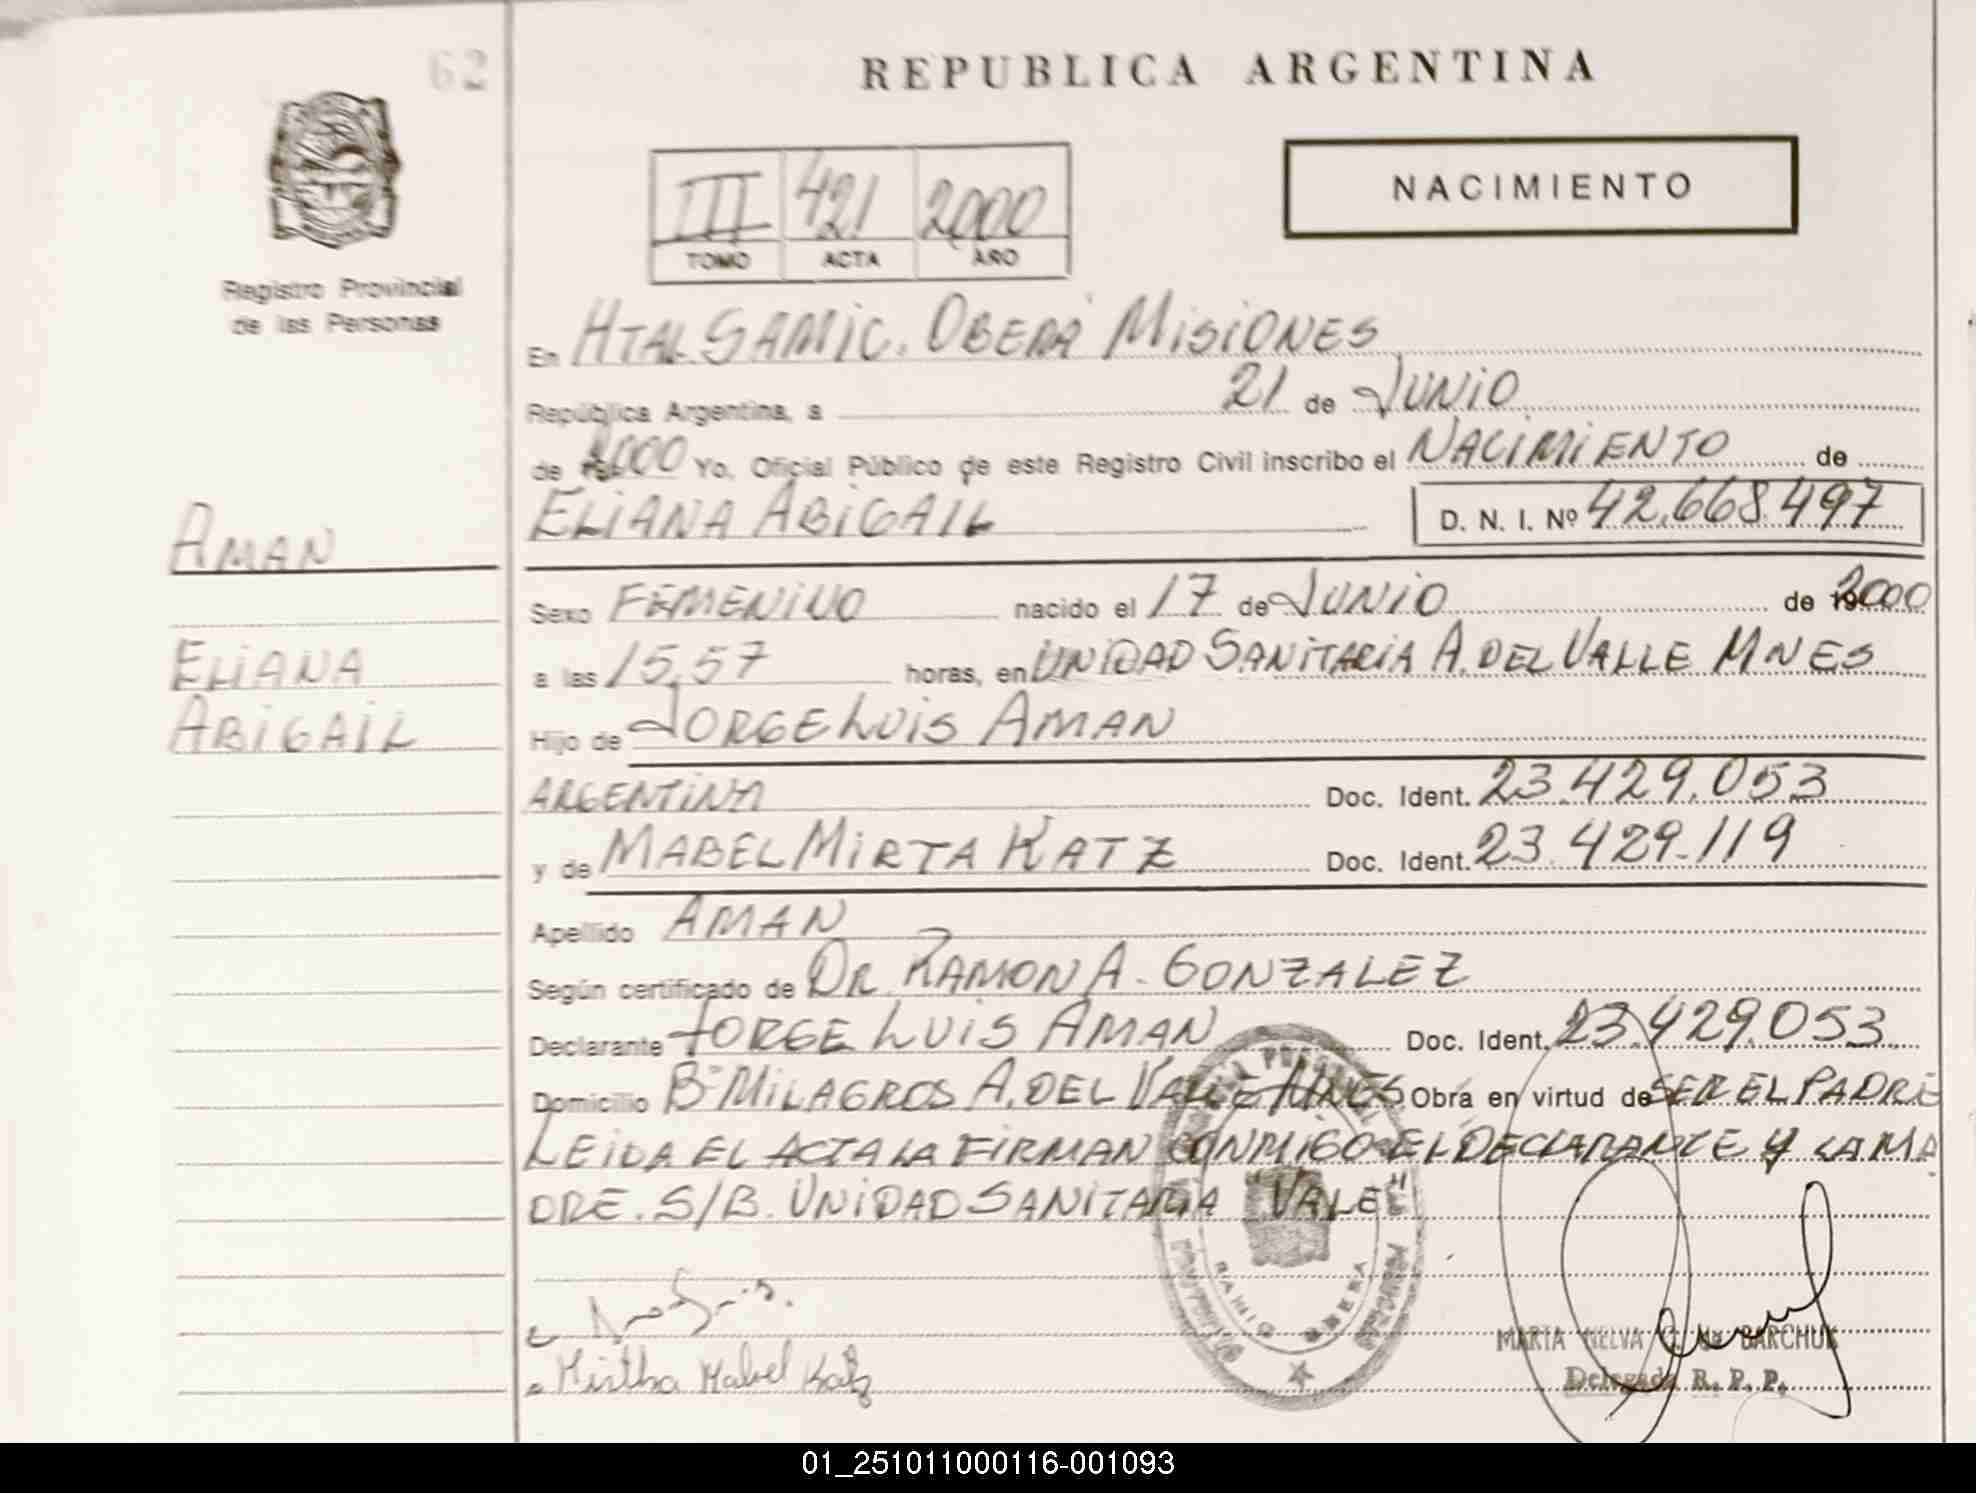 62
REPUBLICA ARGENTINA
NACIMIENTO
III 421 2000
TOMO ACTA AÑO
Registro Provincial
de las Personas
En HTAL SAMIC. OBERÁ MISIONES
República Argentina, a 21 de JUNIO
de 2000 Yo, Oficial Público de este Registro Civil inscribo el NACIMIENTO de
ELIANA ABIGAIL D. N. I. Nº 42.668.497
AMAN
ELIANA
ABIGAIL
Sexo FEMENINO nacido el 17 de JUNIO de 2000
a las 15,57 horas, en UNIDAD SANITARIA A. DEL VALLE MNES
Hijo de JORGE LUIS AMAN
ARGENTINA Doc. Ident. 23.429.053
y de MABEL MIRTA KATZ Doc. Ident. 23.429.119
Apellido AMAN
Según certificado de DR. RAMON A. GONZALEZ
Declarante JORGE LUIS AMAN Doc. Ident. 23.429.053
Domicilio Bº MILAGROS A. DEL VALLE MNES Obra en virtud de SER EL PADRE
LEIDA EL ACTA LA FIRMAN CONMIGO EL DECLARANTE Y LA MA
DRE. S/B. UNIDAD SANITARIA "VALE"
Mirtha Mabel Katz
MARTA NELVA C. de BARCHUK
Delegada R. P. P.
01_251011000116-001093